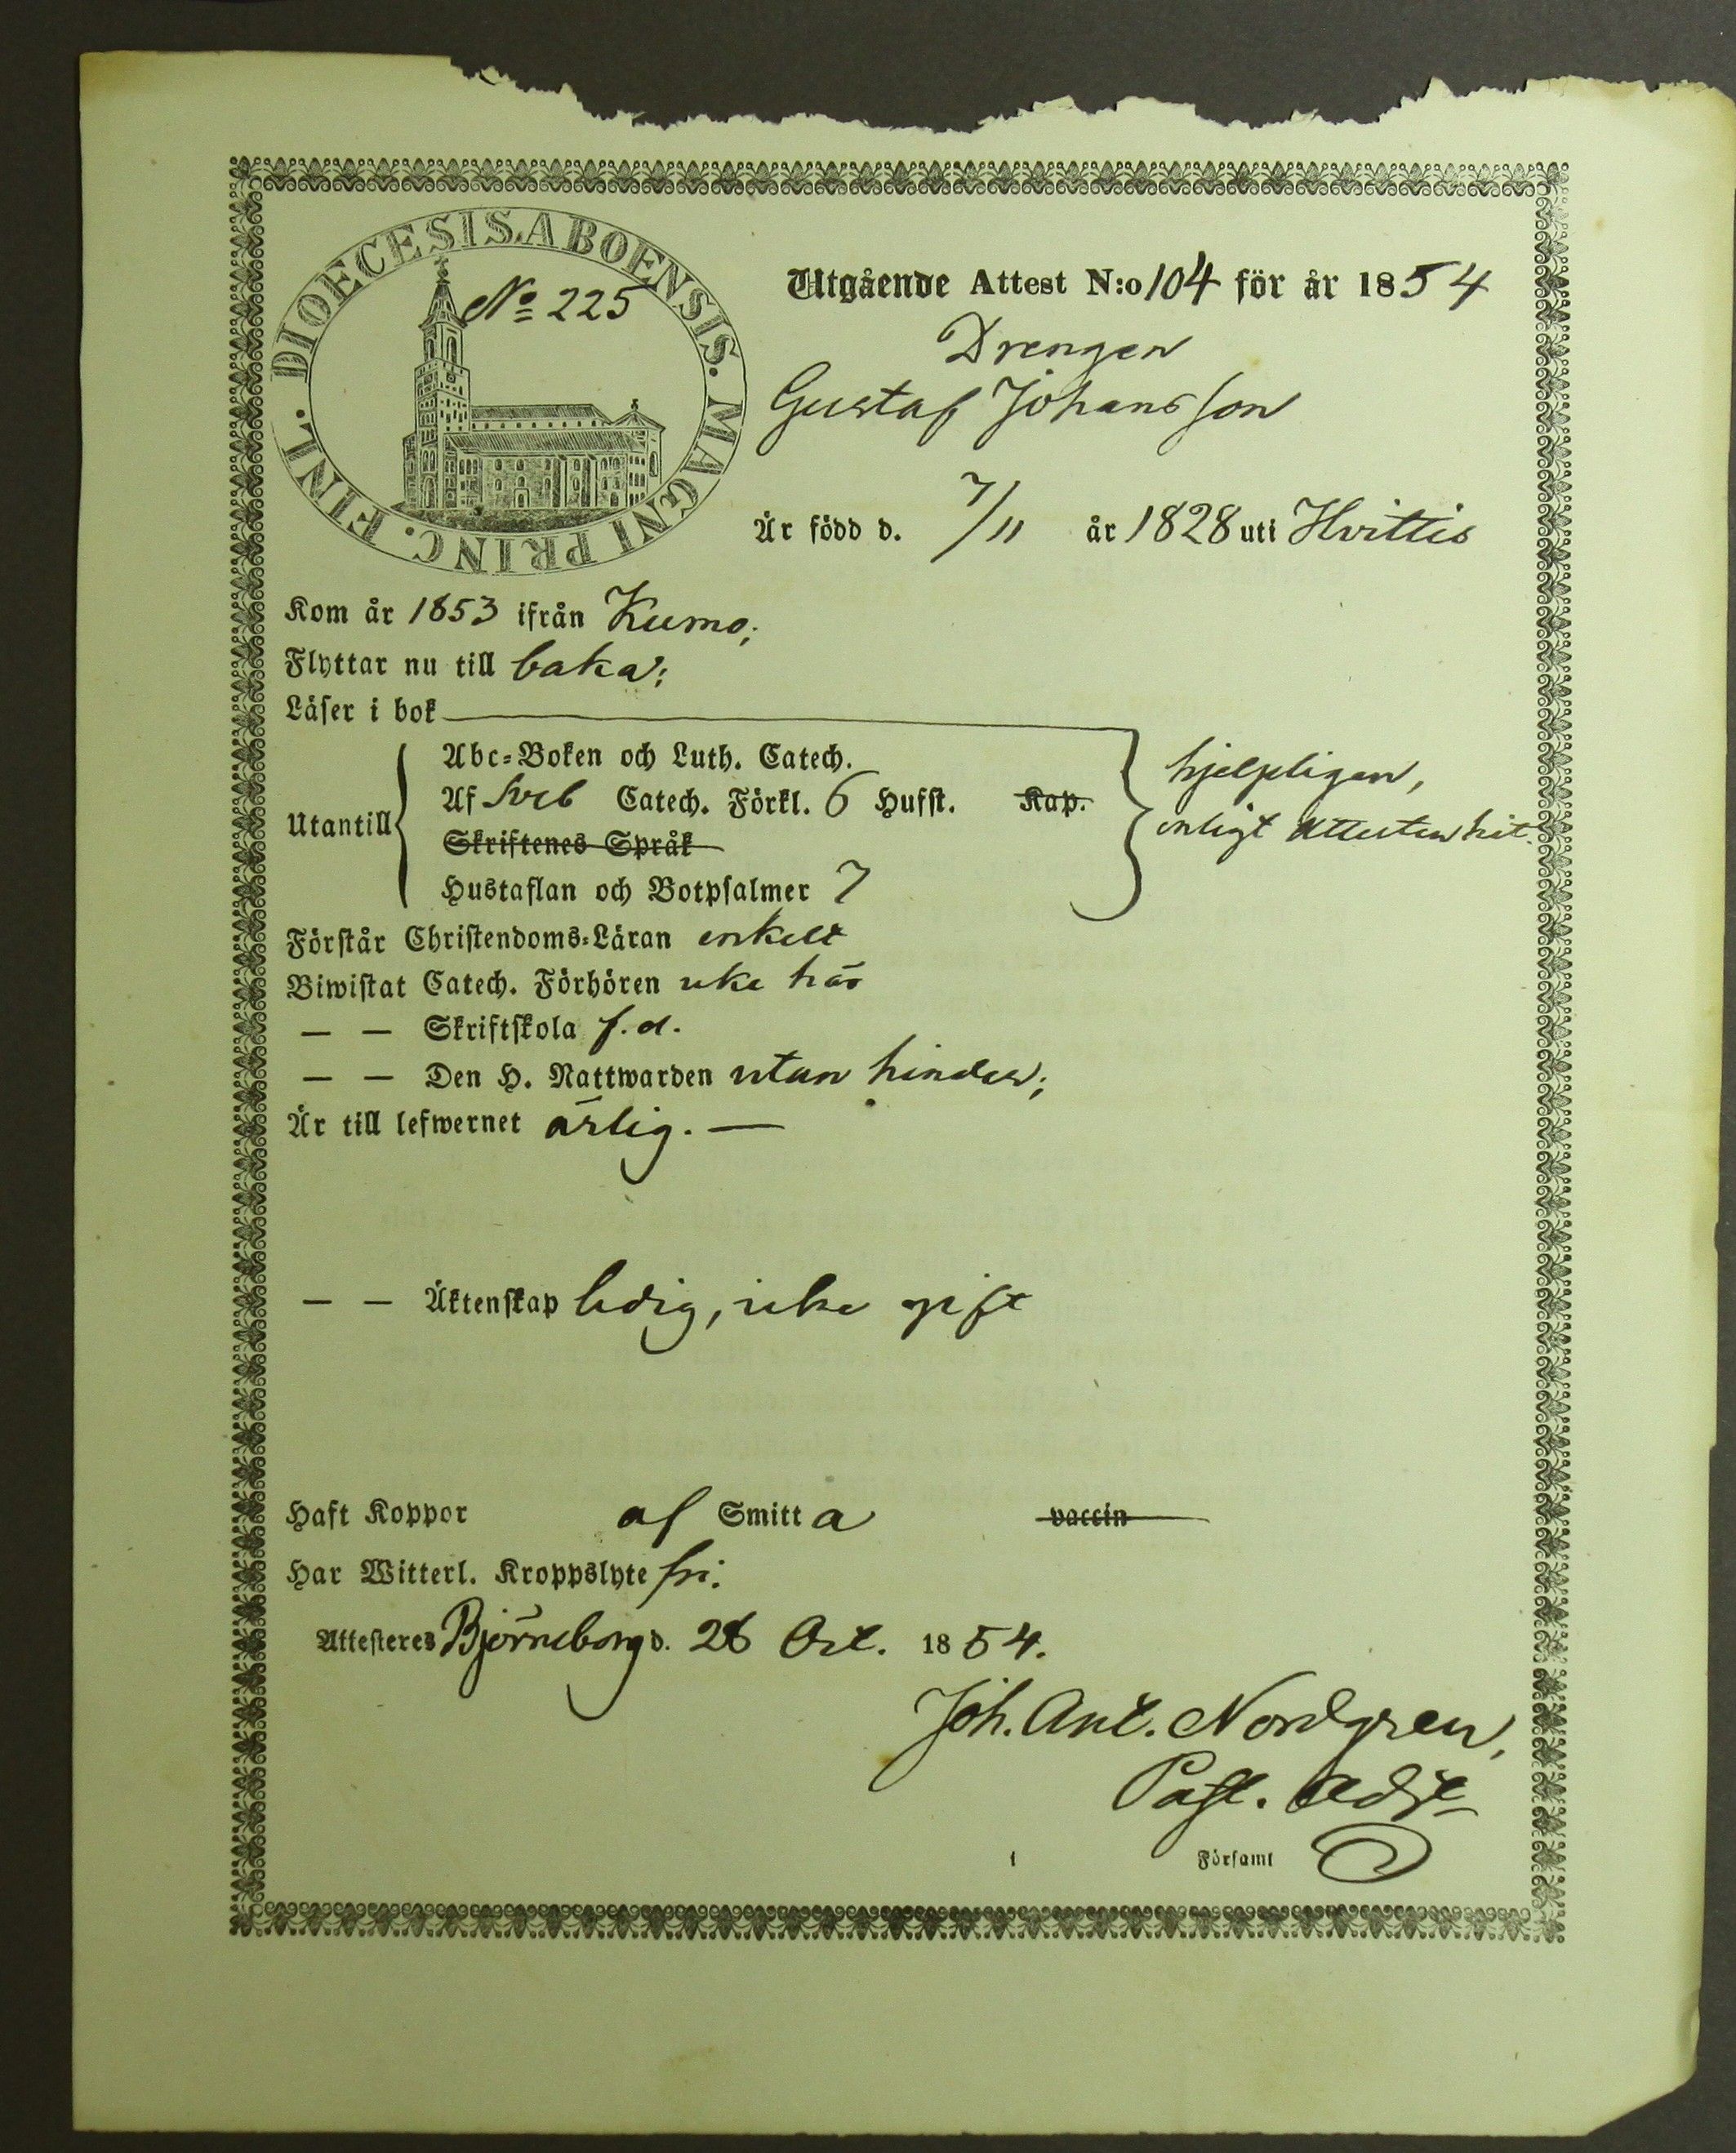 DIOECESIS.ABOENSIS. MAGNI PRINC. FINL.
No 225
Utgående Attest N:o 104 för år 1854
Drengen
Gustaf Johansson
Är född d. 7/11 år 1828 uti Hvittis
Kom år 1853 ifrån Kumo;
Flyttar nu till baka;
Läser i bok
Abc-Boken och Luth. Catech.
Utantill
Af Sveb Catech. Förkl. 6 Hufst. Kap.
Skriftenes Språk
Hustaflan och Botpsalmer 7
hjelpligen,
enligt Attesten hit.
Förstår Christendoms-Läran enkelt
Biwistat Catech. Förhören icke här
— — Skriftskola f.d.
— — Den H. Nattwarden utan hinder;
Är till lefwernet ärlig. —
— — Äktenskap ledig, icke gift
Haft Koppor af Smitta vaccin
Har Witterl. Kroppslyte fri.
Attesteres Björneborg d. 26 Oct. 1854.
Joh. Ant. Nordgren,
Past. Adj.
i Församl